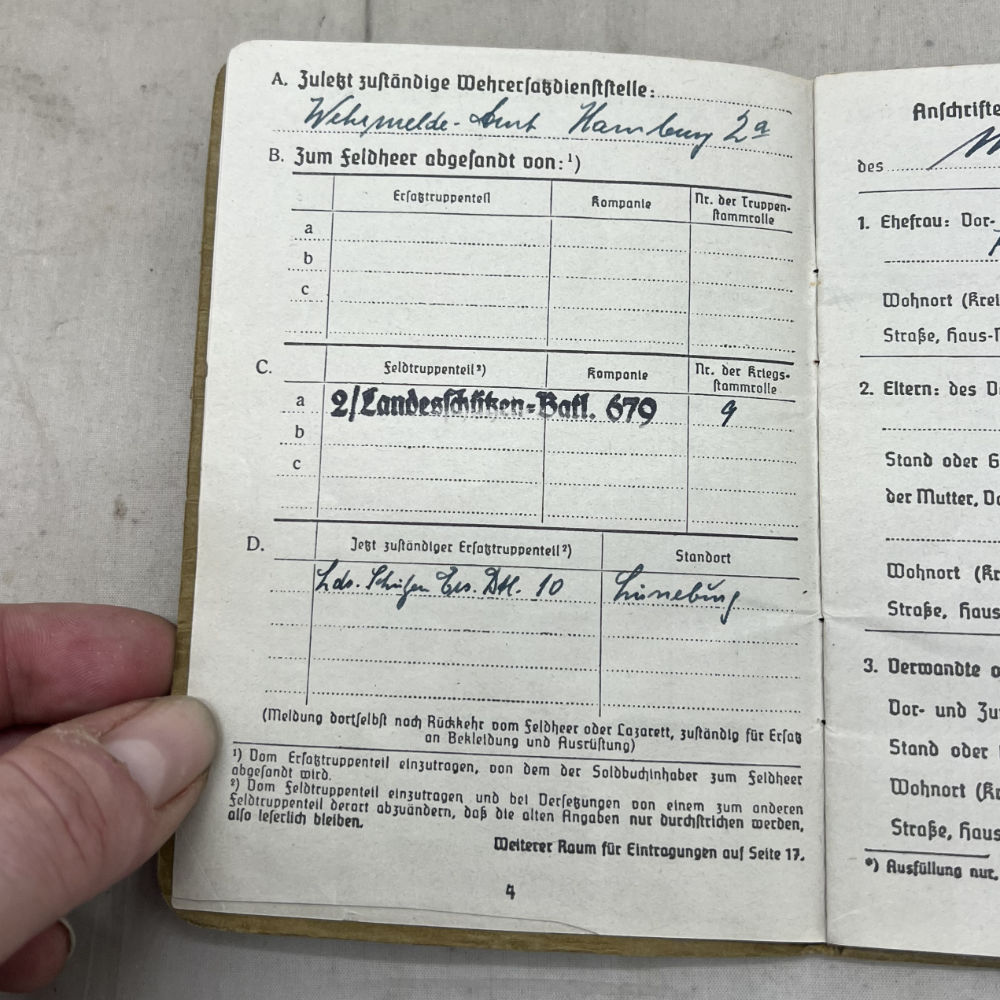 A. Zuletzt zuständige Wehrersatzdienststelle:
Wehrmelde-Amt Hamburg 2a
B. Zum Feldheer abgesandt von: ¹)
Ersatztruppenteil Kompanie Nr. der Truppen-
stammrolle
a
b
c
C. Feldtruppenteil ²) Kompanie Nr. der Kriegs-
stammrolle
a 2/Landesschützen-Batl. 679 9
b
c
D. Jetzt zuständiger Ersatztruppenteil ²) Standort
Lds. Schützen Ers. Btl. 10 Lüneburg
(Meldung dortselbst nach Rückkehr vom Feldheer oder Lazarett, zuständig für Ersatz
an Bekleidung und Ausrüstung)
¹) Vom Ersatztruppenteil einzutragen, von dem der Soldbuchinhaber zum Feldheer
abgesandt wird.
²) Vom Feldtruppenteil einzutragen und bei Versetzungen von einem zum anderen
Feldtruppenteil derart abzuändern, daß die alten Angaben nur durchstrichen werden,
also leserlich bleiben.
Weiterer Raum für Eintragungen auf Seite 17.
4
Anschrifte
des
1. Ehefrau: Vor-
Wohnort (Krei
Straße, Haus-N
2. Eltern: des V
Stand oder G
der Mutter, Vo
Wohnort (Kr
Straße, Haus
3. Verwandte o
Vor- und Zu
Stand oder
Wohnort (Kr
Straße, Haus
*) Ausfüllung nur,